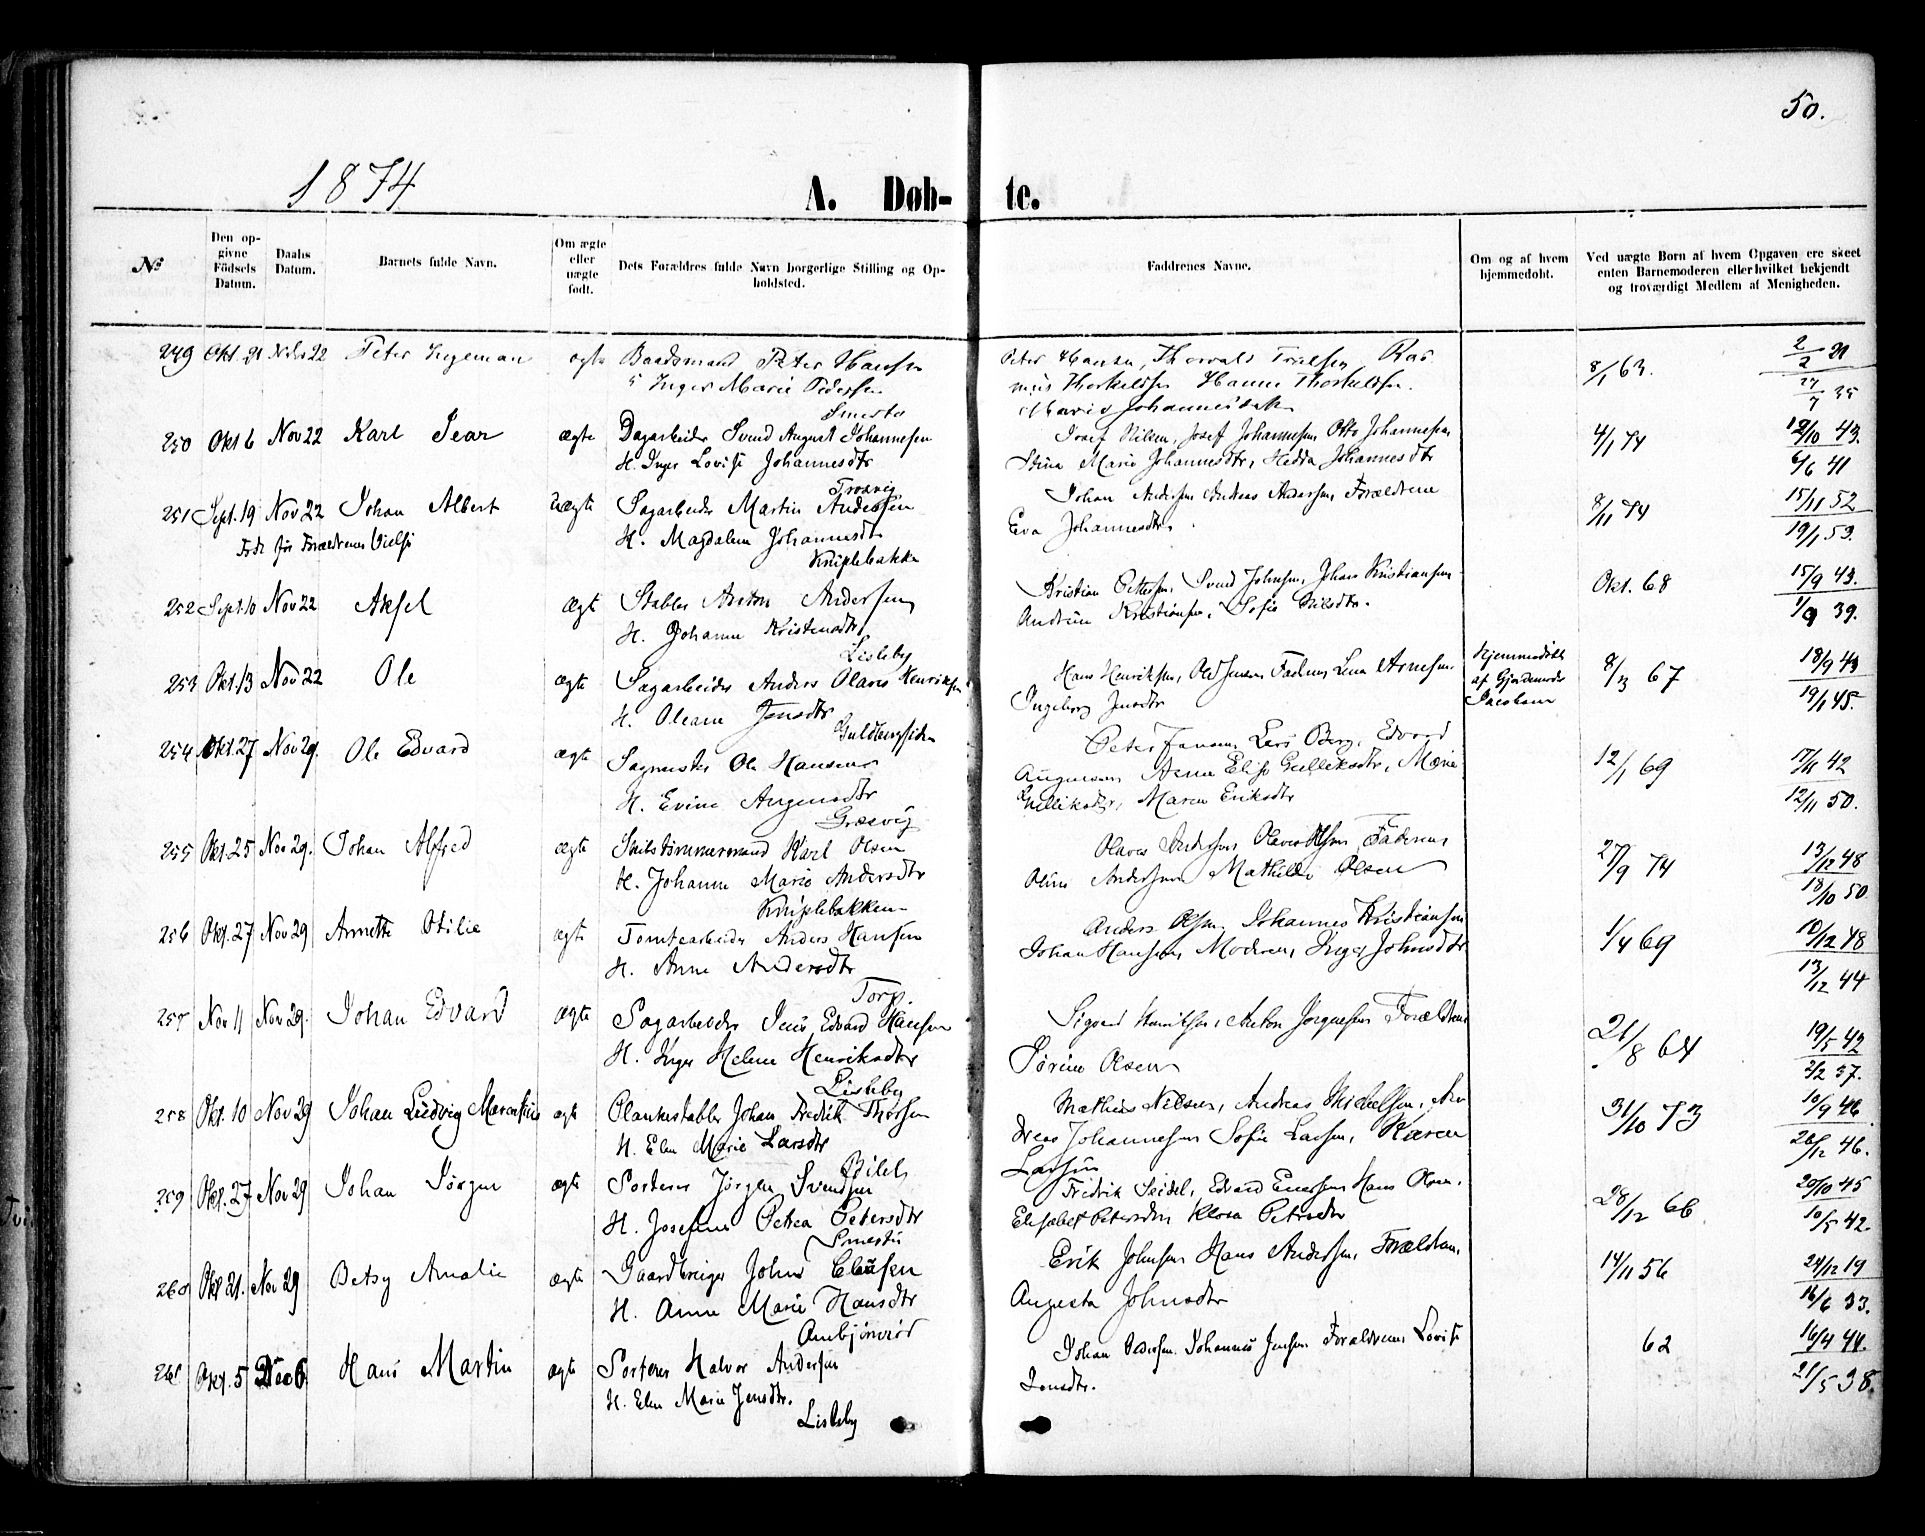 50.
1874
A. Døb- te.
№
Den opgivne Födsels Datum.
Daabs Datum.
Barnets fulde Navn.
Om ægte eller uægte født.
Dets Forældres fulde Navn borgerlige Stilling og Opholdsted.
Faddrenes Navne.
Om og af hvem hjemmedøbt.
Ved uægte Børn af hvem Opgaven ere skeet enten Barnemoderen eller hvilket bekjendt og troværdigt Medlem af Menigheden.
249 Okt. 21 Nov 22 Peter Ingeman ægte Baadsmand Peter Hansen
Inger Marie Pedersen
Peter Hansen, Thorvald Ras
mus Thorkelsen Hanne Thorkelsen.
Marie Johannesdatter
8/1 63.
2/2 21
27/7 35
250 Okt 6 Nov 22 Karl Ivar ægte Dagarbeider Svend August Johannesen
H. Inger Lovise Johannesdtr
Josef Nilsen, Josef Johannesen Otto Johannesen
Stina Marie Johannesdtr, Hedda Johannesdtr
4/1 74
12/10 43.
6/6 41
251 Sept. 19 Nov 22 Johan Albert uægte Sagarbeider Martin Andersen
Trosvig
Født før Forældrenes Vielse
H. Magdalena Johannesdtr
Kniplebakken
Johan Andersen Andreas Andersen Forældrene
Eva Johannesdtr.
8/11 74
15/11 52
19/1 53.
252 Sept. 10 Nov 22 Aksel ægte Stabler Anton Andersen
H. Johanne Kristensdtr
Lisleby
Kristian Pettersen, Svend Johnsen, Johan Kristiansen
Andrine Kristiansen, Sofie Nilsdtr.
Okt. 68
15/9 43.
1/9 39.
253 Okt. 13 Nov 22 Ole ægte Sagarbeider Anders Olaves Henriksen
H. Oleane Jensdtr
Guldbergsiden
Hans Henriksen, Ole Jensen Faderen, Lena Arnesen.
Ingeborg Jensdtr
Hjemmedøbt
af Gjordemoder
Jacobsen
8/3 67
18/9 43
19/1 45.
254 Okt. 27 Nov 29. Ole Edvard ægte Sagmester Ole Hansen
H. Evine Augensdtr
Græsvig
Peter Jansen, Lars Berg, Edvard
Augensen Anne Elise Gulliksdtr, Marie
Gulliksdtr, Maren Eriksdtr
12/1 69
17/8 42
12/11 50.
255 Okt. 25 Nov 29. Johan Alfred ægte Skibstømmermand Karl Olsen
H. Johanne Marie Andersdtr
Kniplebakken
Olaves Andersen Olaves Olsen, Faderen
Oline Andersen Mathilde Olsen
27/9 74
13/12 48
18/10 50.
256 Okt. 27 Nov 29 Annette Otilie ægte Tomtearbeider Anders Hansen
H. Anne Andersdtr
Torp.
Anders Olsen, Johannes Kristiansen
Johan Hansen, Moderen, Inger Johnsdtr
1/4 69
10/12 48
13/12 44
257 Nov 11 Nov 29. Johan Edvard ægte Sagarbeider Jens Edvard Hansen
H. Inger Helene Henriksdtr
Lisleby
Sigvard Henriksen, Anton Jørgensen Forældrene
Sørine Olsen
21/8 64
19/5 42
2/2 37.
258 Okt. 10 Nov 29 Johan Ludvig Marentius ægte Plankestabler Johan Fredrik Thorsen
H. Elen Marie Larsdtr
Mathias Nilsen, Andreas Mikkelsen, An
dreas Johannesen Sofie Larsen, Karen
Larsen
31/10 73
10/9 46
26/12 46.
259 Okt. 27 Nov 29 Johan Jörgen ægte Sorterer Jörgen Svendsen
H. Josefine Petrea Petersdtr
Smertu
Fredrik Seidel, Edvard Enersen Hans Olsen.
Elisabet Petersdtr Klara Petersdtr
28/12 66
20/10 45
10/5 42.
260 Okt 21. Nov 29 Betsy Amalie ægte Gaardbruger John Clausen
H. Anne Marie Hansdtr
Ambjörnröd
Erik Johnsen Hans Andersen, Forældrene,
Augusta Johnsdtr
14/11 56
24/12 19
16/6 33.
261 Okt. 5 Dec 6 Hans Martin ægte Sorterer Halvor Andersen
H. Elen Marie Jensdtr.
Lisleby
Johan Pedersen, Johannes Jensen Forældrene Lovise
Jensdtr.
62
16/4 44.
21/5 38.